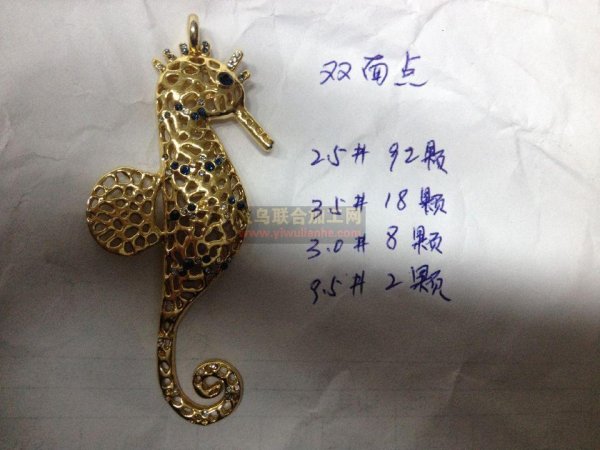 双面点
2.5# 92颗
3.5# 18颗
乌联合加工网
www.yiwulianhe.com
3.0# 8颗
9.5# 2颗